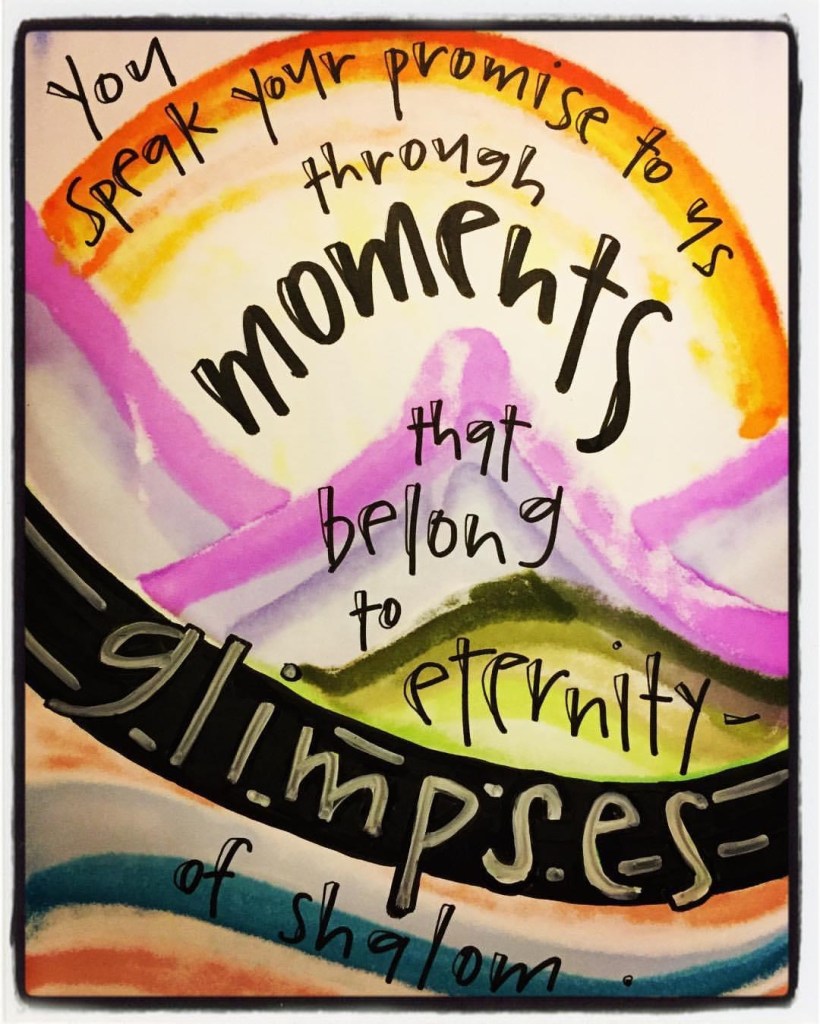 You
speak your promise to us
through
moments
that
belong
to
eternity-
glimpses
of shalom.